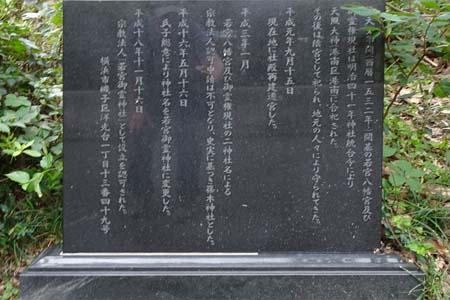 天文元年間（西暦一五三二年）開基の若宮八幡宮及び
御霊権現社は明治四十一年神社統合令により
天照大神（峯南巨峯南）に合祀された。
その後は陰祭として祀られ、地元の人々により守られてきた。
平成元年九月十五日
現在地に社殿再建遷宮した。
平成三年一月
若宮八幡宮及び御霊権現社の二神社名による
宗教法人認可申請は不可となり、史実に基づき藤木神社とした。
平成十六年五月十六日
氏子総意により神社名を若宮御霊神社に変更した。
平成十八年十一月十六日
宗教法人「若宮御霊神社」として設立を認可された。
横浜市磯子区洋光台一丁目十三番四十九号